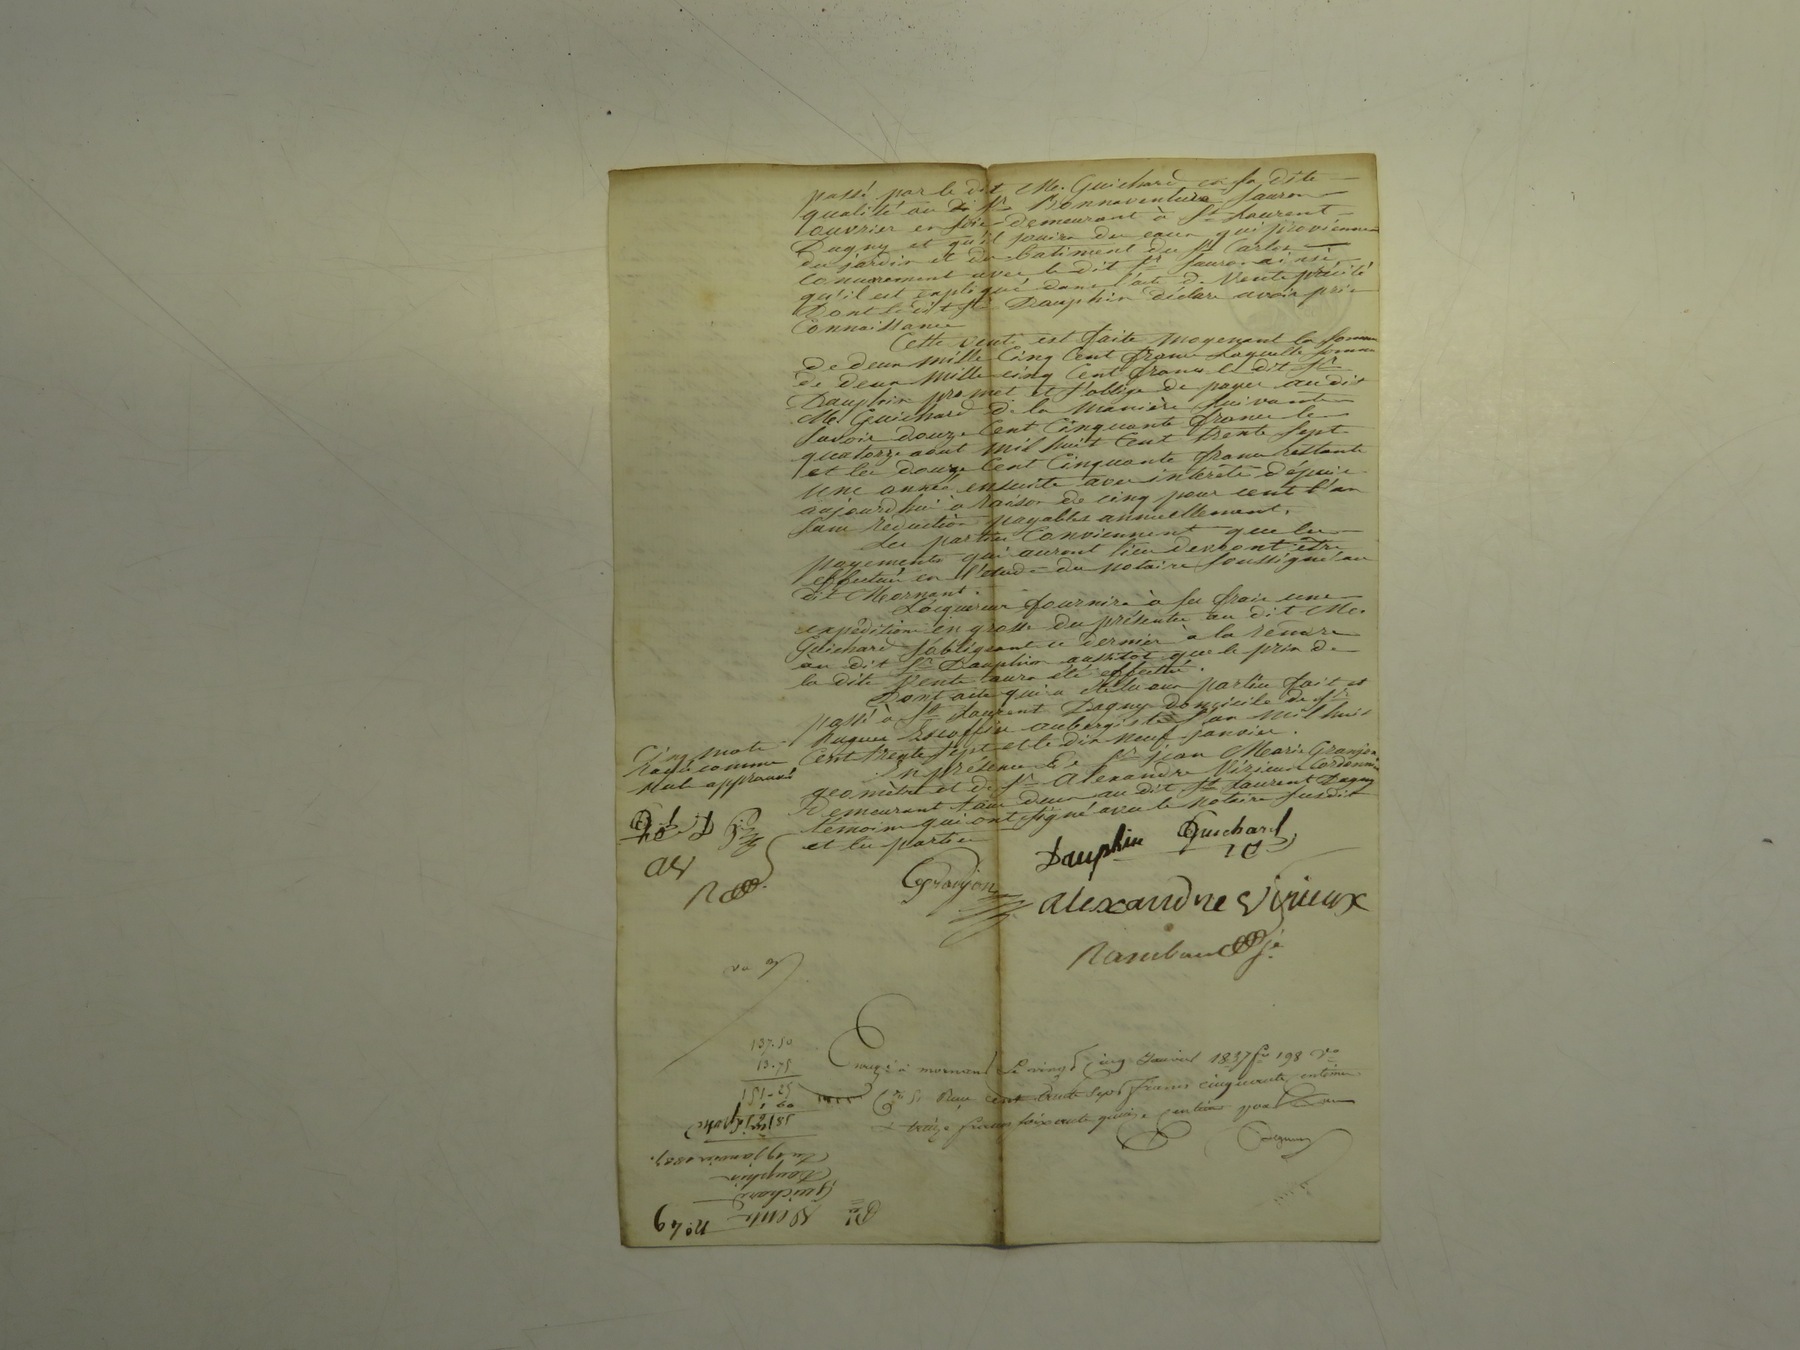 passé par le dit Me. Guichard en sa dite
qualité au dit Sr. Bonnaventure Sauron
ouvrier en soie demeurant à St. Laurent
Dagny et qu'il jouira des eaux qui proviennent
du jardin et du batiment du Sr. Carlos
concurrement avec le dit Sr. Sauron ainsi
qu'il est expliqué dans l'acte de Vente précité
Dont le dit Sr. Dauphin déclare avoir pris
Connaissance
Cette vente est faite moyenant la somme
de deux mille Cinq Cent francs Laquelle somme
de deux mille cinq Cent francs le dit Sr.
Dauphin promet et s'oblige de payer au dit
Me. Guichard de la manière suivante
savoir douze Cent Cinquante francs le
quatorze aout mil huit Cent trente sept
et les douze Cent Cinquante francs restants
une année ensuite avec intérêts dépuis
aujourd'hui à raison de cinq pour cent l'an
sans réduction payables annuellement.
Les parties Conviennent que les
payements qui auront lieu devront être
effectués en l'étude du notaire soussigné au
dit Mornant.
L'aquéreur fournira à ses frais une
expédition en grosse des présentes au dit Me.
Guichard s'obligeant ce dernier à la remettre
au dit Sr. Dauphin aussitot que le prix de
la dite Vente aura été effectué.
Dont acte qui a été lu aux parties fait et
passé à St. Laurent Dagny domicile de Sr.
Hugues Escoffier aubergiste l'an mil huit
Cent trente sept et le dix neuf janvier.
En présence de Sr. jean Marie Granjon
géomètre et de Sr. Alexandre Virieux Cordonnier
Demeurant tous deux au dit St. Laurent Dagny
témoins qui ont signé avec le notaire susdit
et les parties
Cinq mots
rayés comme
nuls approuvés
D
G
AV
R
Dauphin Guichard
Granjon
Alexandre Virieux
Rambaud je.
Enregé à mornant le vingt cinq Janvier 1837 fo 198 Vo
Reçu cent trente sept francs cinquante centimes
et treize francs soixante quinze centimes pour
137.50
13.75
151-25
Du 19 janvier 1837.
Dauphin
Guichard
Vente no. 49